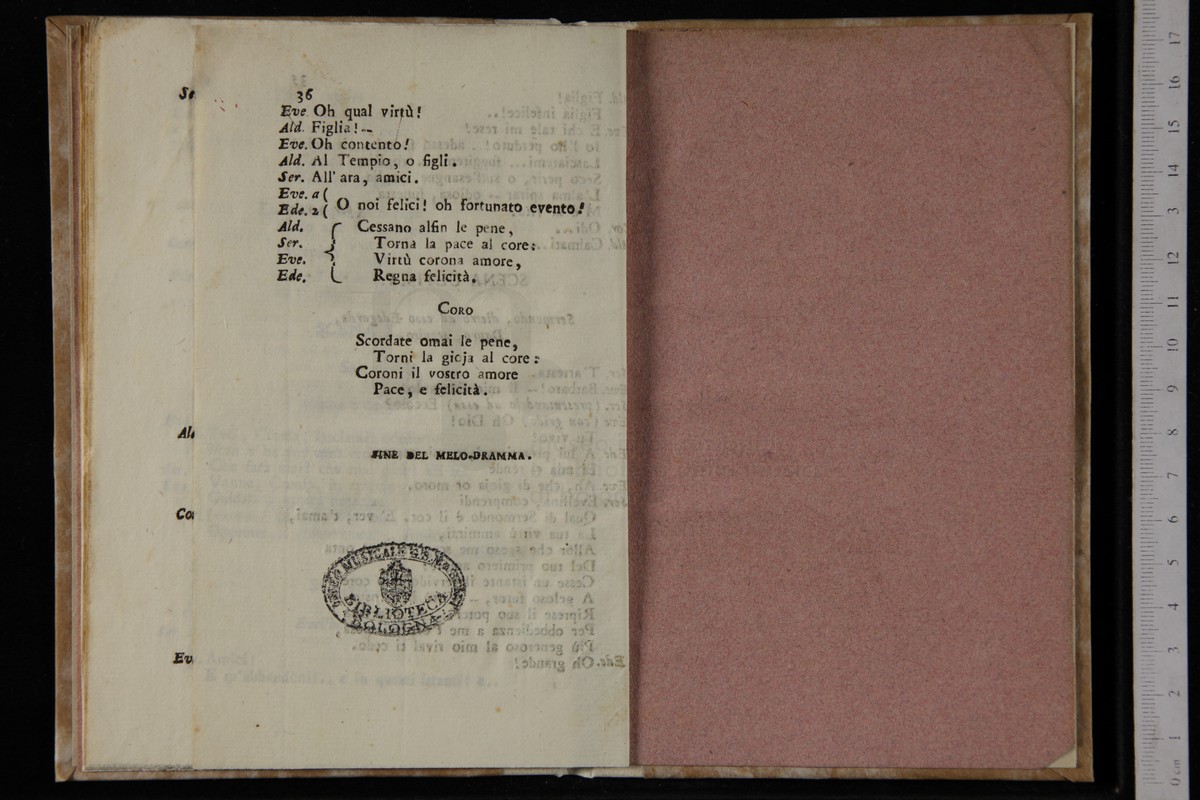 36
Eve Oh qual virtù!
Ald. Figlia! --
Eve. Oh contento!
Ald. Al Tempio, o figli.
Ser. All' ara, amici.
Eve. a (
Ede. 2 ( O noi felici! oh fortunato evento!
Ald. Cessano alfin le pene,
Ser. Torna la pace al core:
Eve. Virtù corona amore,
Ede. Regna felicità.
CORO
Scordate omai le pene,
Torni la gioja al core:
Coroni il vostro amore
Pace, e felicità.
FINE DEL MELO-DRAMMA.
BIBLIOTECA
BOLOGNA
Se
Al
Co
Ev